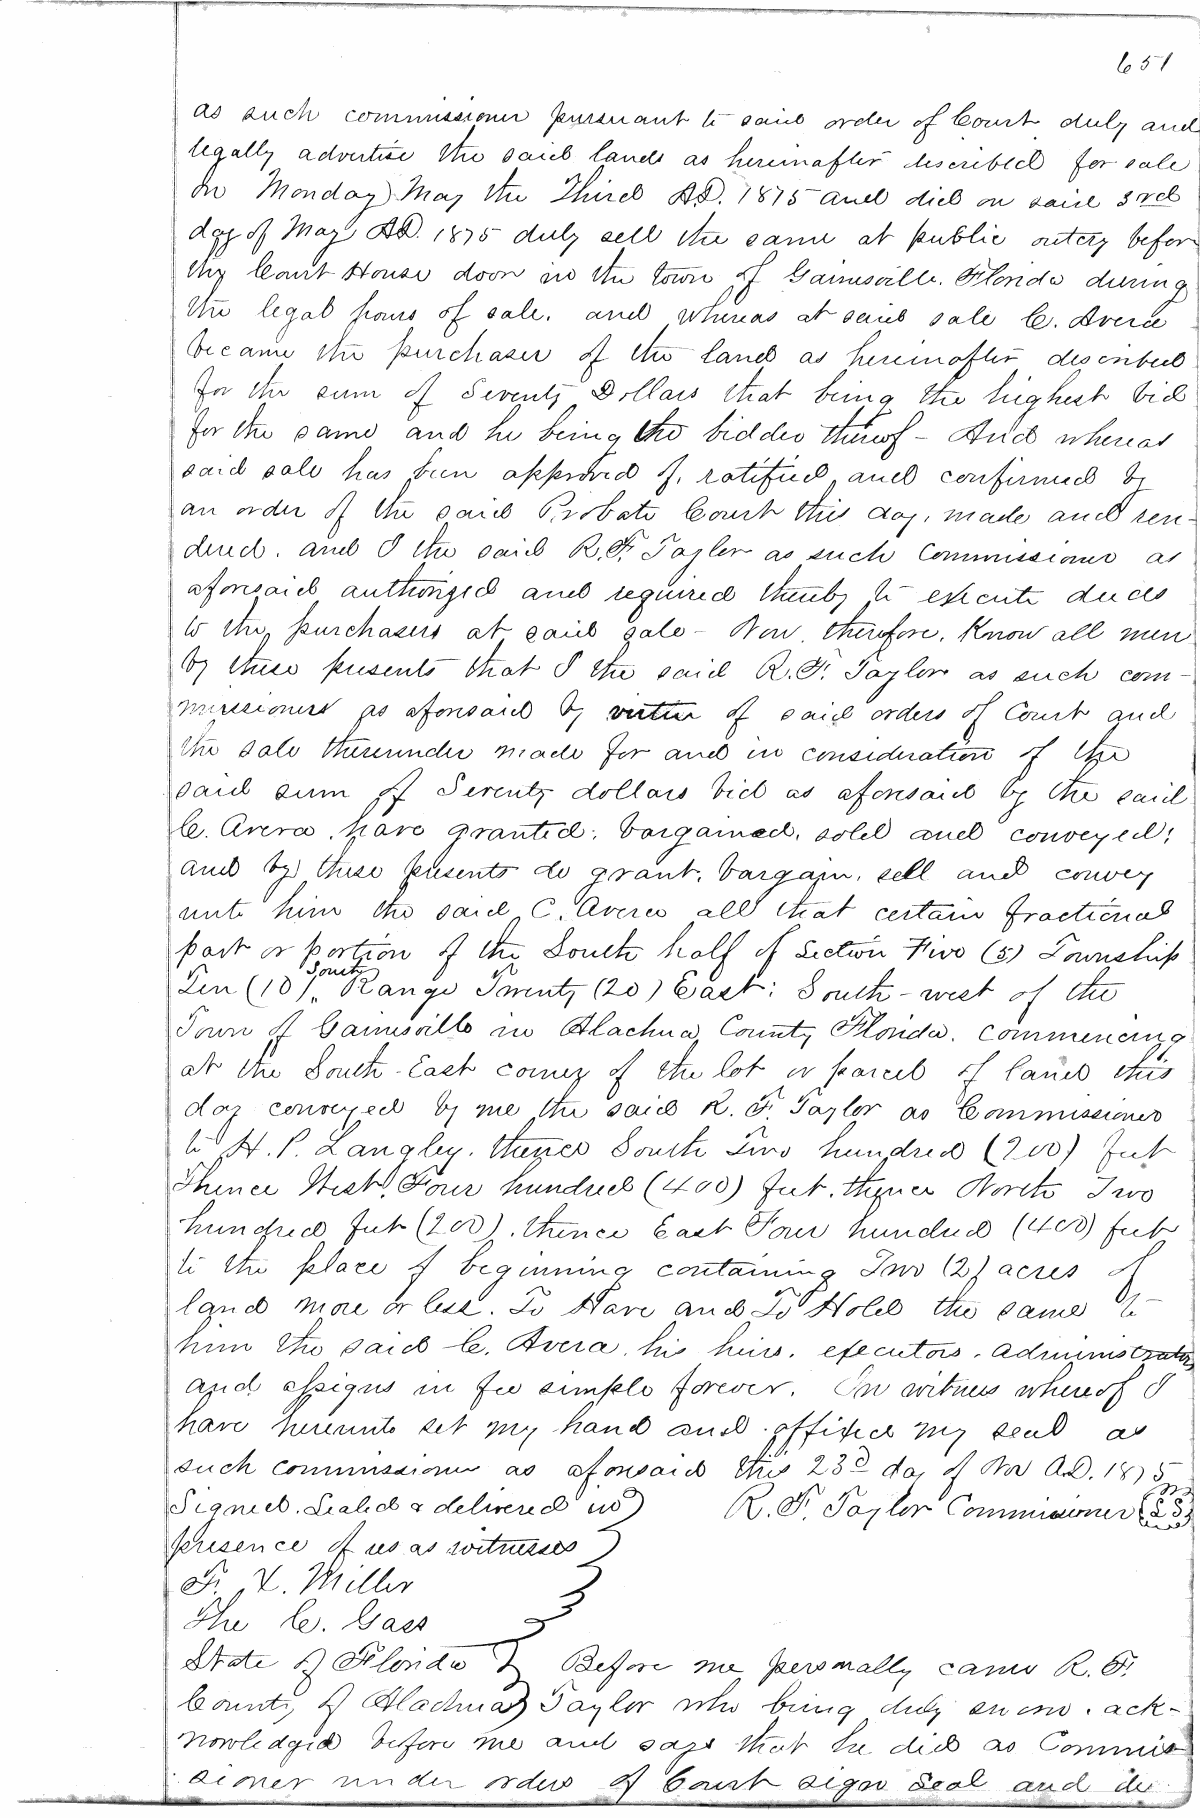 651
as such commissioner pursuant to said order of Court duly and
legally advertise the said lands as hereinafter described for sale
on Monday May the Third A.D. 1875 and did on said 3rd
day of May A.D. 1875 duly sell the same at public outcry before
the Court House door in the town of Gainesville. Florida during
the legal hours of sale. and whereas at said sale C. Avera
became the purchaser of the land as hereinafter described
for the sum of Seventy Dollars that being the highest bid
for the same and he being the bidder thereof - And whereas
said sale has been approved of, ratified and confirmed by
an order of the said Probate Court this day, made and ren-
dered. and I the said R. F. Taylor as such Commissioner as
aforesaid authorized and required thereby to execute deeds
to the purchasers at said sale - Now, therefore, Know all men
by these presents that I the said R. F. Taylor as such com-
missioners as aforesaid by virtue of said orders of Court and
the sale thereunder made for and in consideration of the
said sum of Seventy dollars bid as aforesaid by the said
C. Avera have granted, bargained, sold and conveyed;
and by these presents do grant, bargain, sell and convey
unto him the said C. Avera all that certain fractional
part or portion of the South half of Section Five (5) Township
Ten (10) South Range Twenty (20) East; South-west of the
Town of Gainesville in Alachua County Florida. commencing
at the South-East corner of the lot or parcel of land this
day conveyed by me the said R. F. Taylor as Commissioner
to H. P. Langley. thence South Two hundred (200) feet
Thence West Four hundred (400) feet. thence North Two
hundred feet (200). thence East Four hundred (400) feet
to the place of beginning containing Two (2) acres of
land more or less. To Have and To Hold the same to
him the said C. Avera his heirs. executors. administrators
and assigns in fee simple forever. In witness whereof I
have hereunto set my hand and affixed my seal as
such commissioner as aforesaid this 23d day of Nov A.D. 1875
Signed. Sealed & delivered in R. F. Taylor Commissioner (LS)
presence of us as witnesses
F. X. Miller
The C. Gass
State of Florida Before me personally came R. F.
County of Alachua Taylor who being duly sworn. ack-
nowledged before me and says that he did as Commis-
sioner under orders of Court sign Seal and de